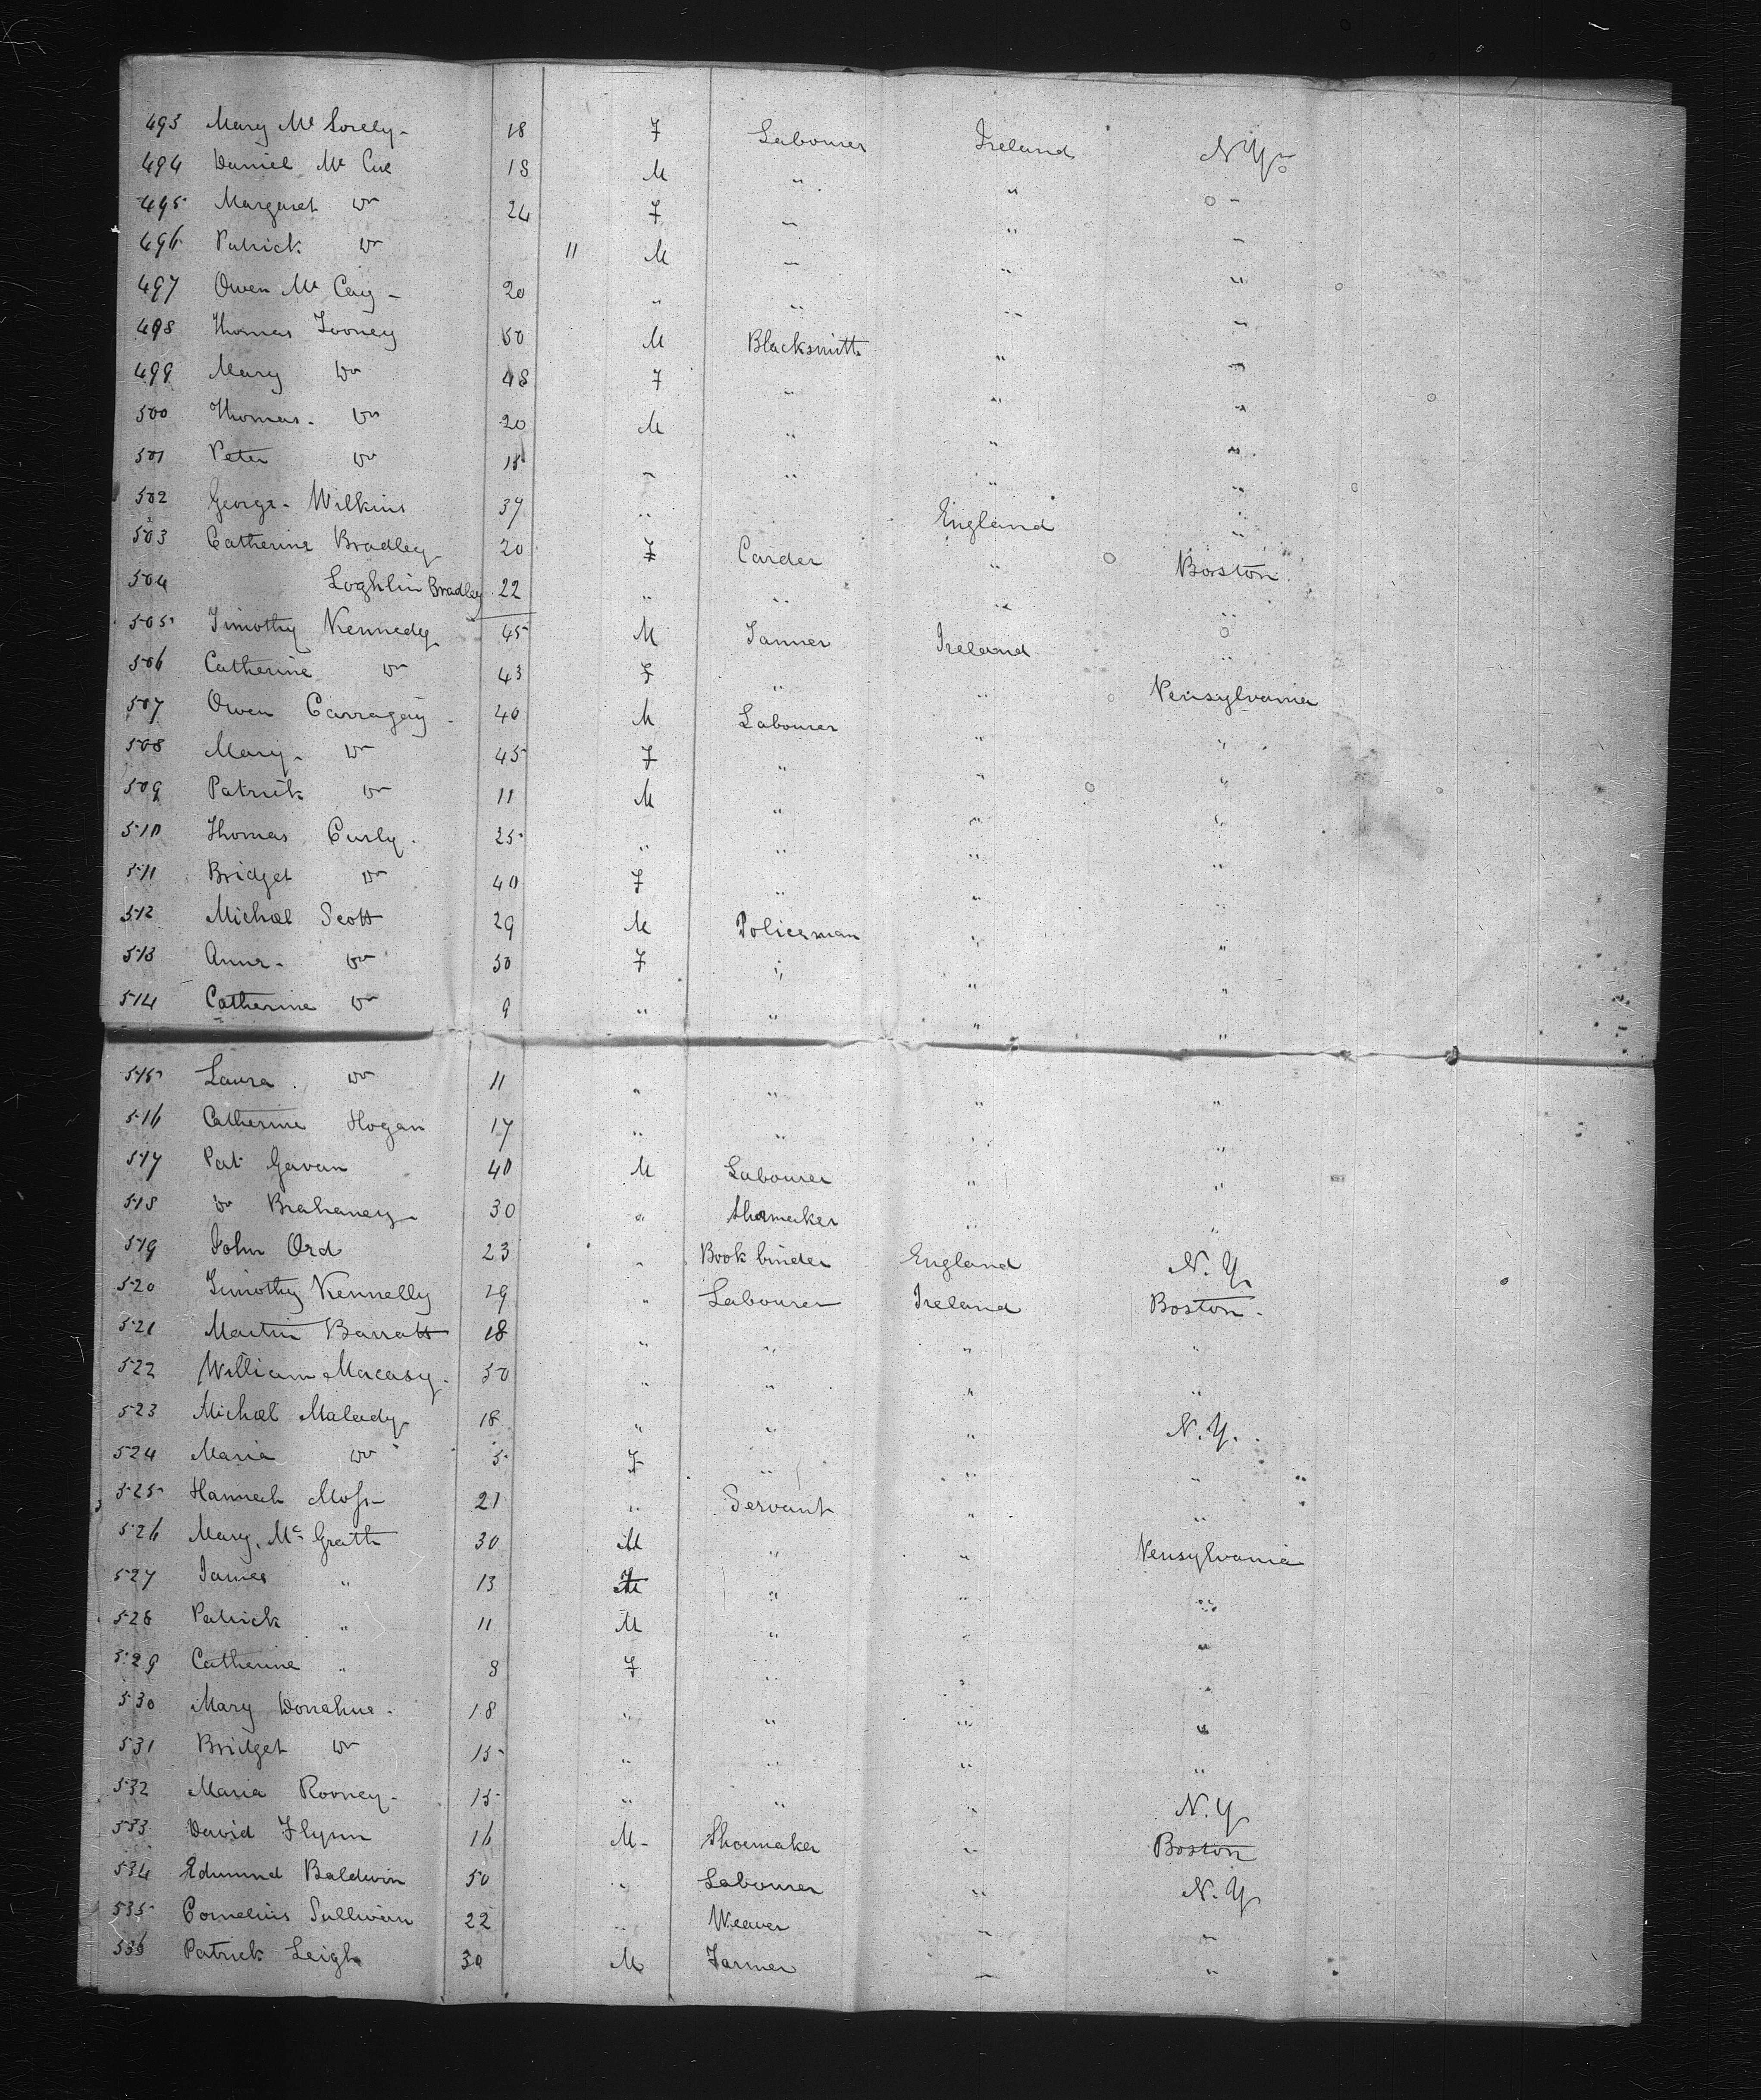 493 Mary Mc Sorely - 18 F Labourer Ireland N.Y.
494 Daniel Mc Cue 18 M " " -
495 Margaret Do 24 F - " -
496 Patrick Do 11 M - " "
497 Owen Mc Coy - 20 " " " -
498 Thomas Tooney 50 M Blacksmith " "
499 Mary Do 48 F " " "
500 Thomas - Do 20 M " " "
501 Peter Do 15 - " " "
502 George - Wilkins 37 " England "
503 Catherine Bradley 20 F Carder " Boston
504 Loghlin Bradley 22 " " " "
505 Timothy Kennedy 45 M Tanner Ireland "
506 Catherine Do 43 F " " Pensylvania
507 Owen Carragay - 40 M Labourer " "
508 Mary - Do 45 F " " "
509 Patrick Do 11 M " " "
510 Thomas Curly . 25 " " " "
511 Bridget Do 40 F " " "
512 Michael Scott 29 M Policeman " "
513 Anne - Do 30 F " " "
514 Catherine Do 9 " " " "
515 Laura . Do 11 " " " "
516 Catherine Hogan 17 " " " "
517 Pat Gavan 40 M Labourer " "
518 Do Brahaney - 30 " Shoemaker " "
519 John Ord 23 " Book binder England N.Y.
520 Timothy Kennelly 29 " Labourer Ireland Boston -
521 Martin Barratt 18 " " " "
522 William Macasy . 50 " " " "
523 Michael Malady - 18 " " " N.Y.
524 Maria Do 5 F " " "
525 Hannah Moss - 21 " Servant " "
526 Mary Mc Grath 30 M " " Pensylvania
527 James " 13 " " "
528 Patrick " 11 M " " "
529 Catherine " 8 F " " "
530 Mary Donahue - 18 " " " "
531 Bridget Do 15 " " " "
532 Maria Rooney - 15 " " " N.Y
533 David Flynn 16 M - Shoemaker " Boston
534 Edmund Baldwin 50 " Labourer " N.Y
535 Cornelius Sullivan 22 " Weaver - -
536 Patrick Leigh 30 M Farmer - "